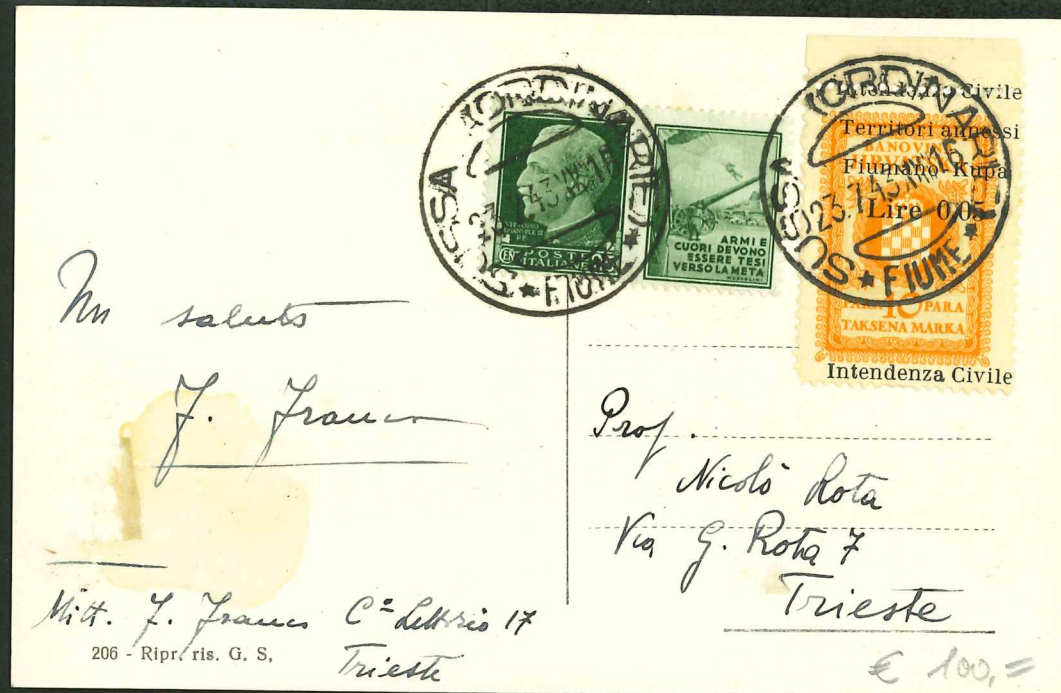 SUSSA (ORDINARIE) ★ FIUME ★
23.7.43
VITTORIO
EMANUELE III
RE
POSTE
ITALIANE
ARMI E
CUORI DEVONO
ESSERE TESI
VERSO LA META
MUSSOLINI
SUSSA (ORDINARIE) ★ FIUME ★
23.7.43
Intendenza Civile
Territori annessi
Fiumano Kupa
Lire 0,05
BANOVINA
HRVATSKA
PARA 10 PARA
TAKSENA MARKA
Intendenza Civile
Un saluto
F. Franco
Prof.
Nicolò Rota
Via G. Rota 7
Trieste
Mitt. F. Franco C° 17
Trieste
206 - Ripr. ris. G. S,
€ 100,=